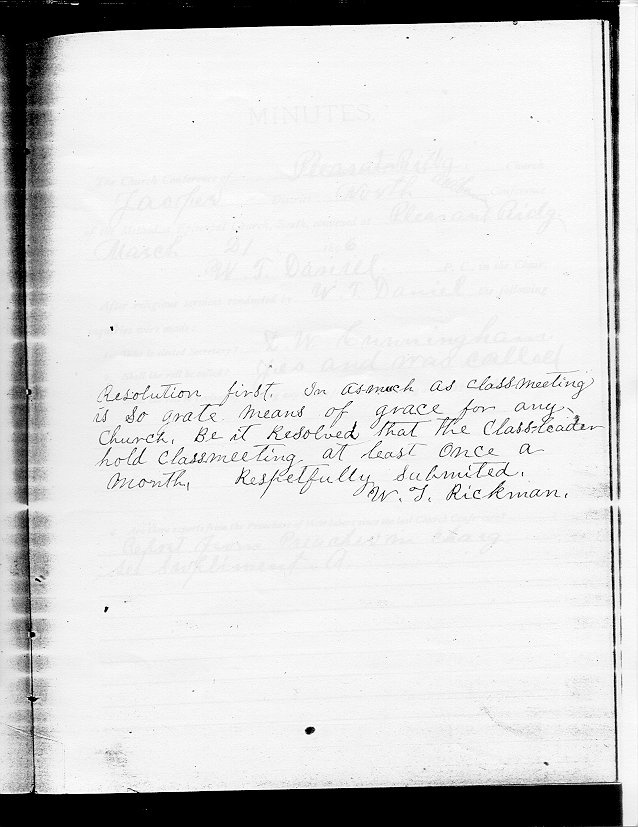 MINUTES.
The Church Conference of Pleasant Church
Jasper District North Conference
of the Methodist Episcopal Church, South, convened at Pleasant Ridg
March 21
W. T. Daniel P. C. in the Chair.
After religious services conducted by W. T. Daniel the following
Cunningham
yes and was called
Resolution first. In asmuch as classmeeting
is so grate means of grace for any
Church, Be it Resolved that the Class-leader
hold classmeeting at least Once a
Month, Respetfully Submited.
W. T. Rickman.
Report from Preacher in charg
A.